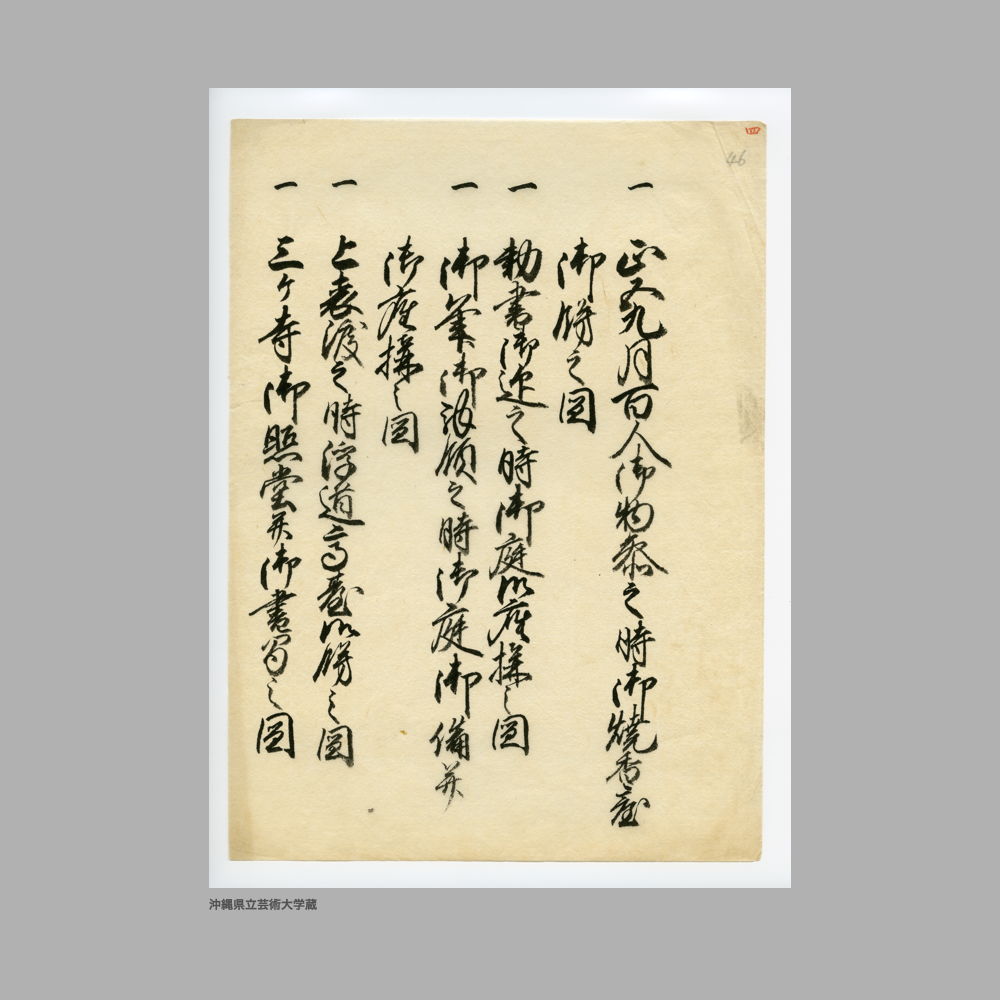 四
46
一 正五九月百人御物参之時御焼香台
御餝之図
一 勅書御迎之時御庭御座構之図
一 御筆御拝領之時御庭御備并
御座構之図
一 上表渡之時浮道高台御餝之図
一 三ヶ寺御照堂并御書写之図
沖縄県立芸術大学蔵